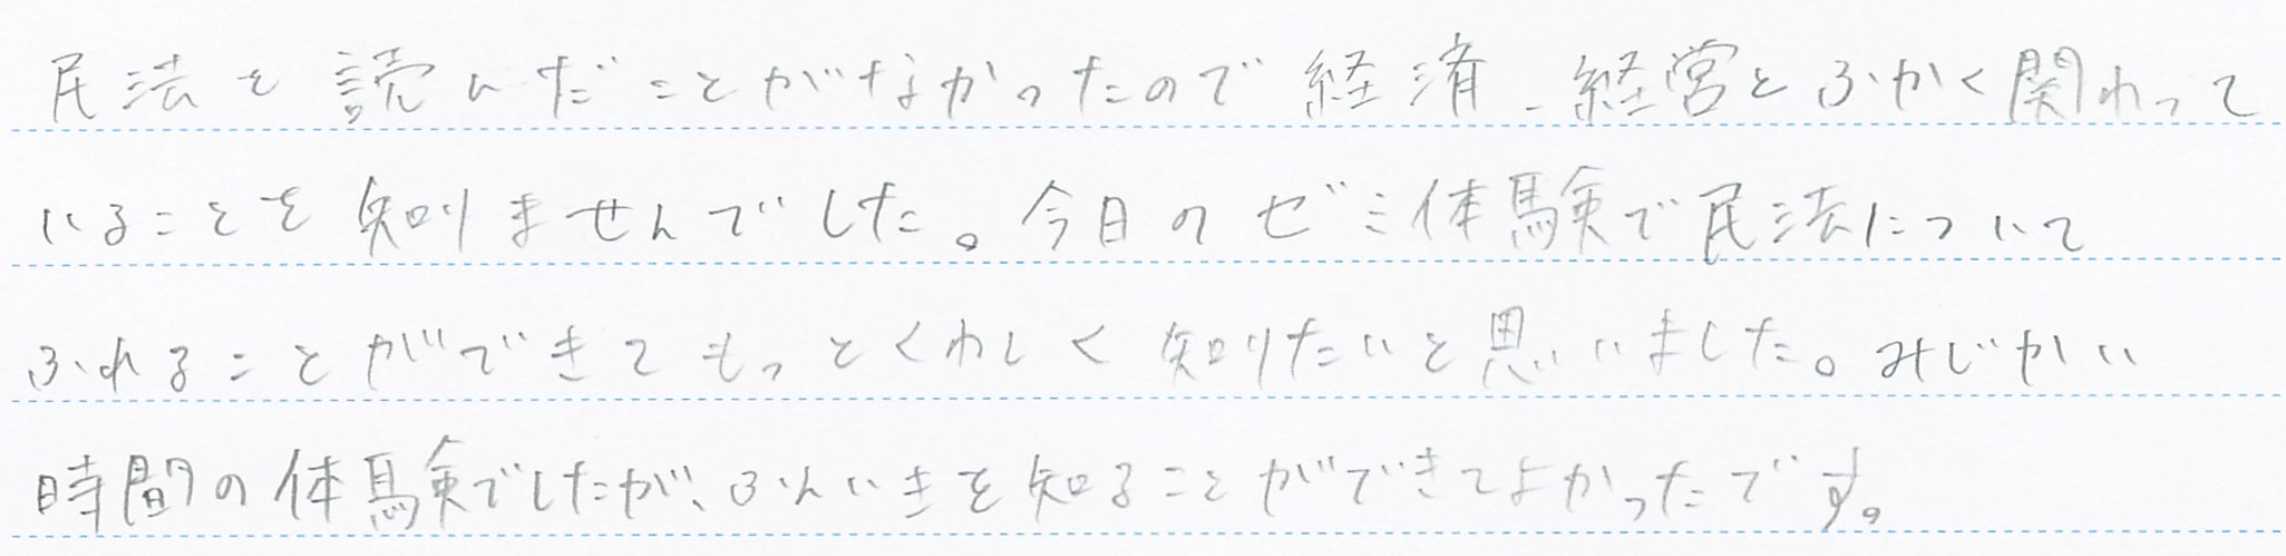 民法を読んだことがなかったので経済、経営とふかく関わって
いることを知りませんでした。今日のゼミ体験で民法について
ふれることができてもっとくわしく知りたいと思いました。みじかい
時間の体験でしたが、ふんいきを知ることができてよかったです。